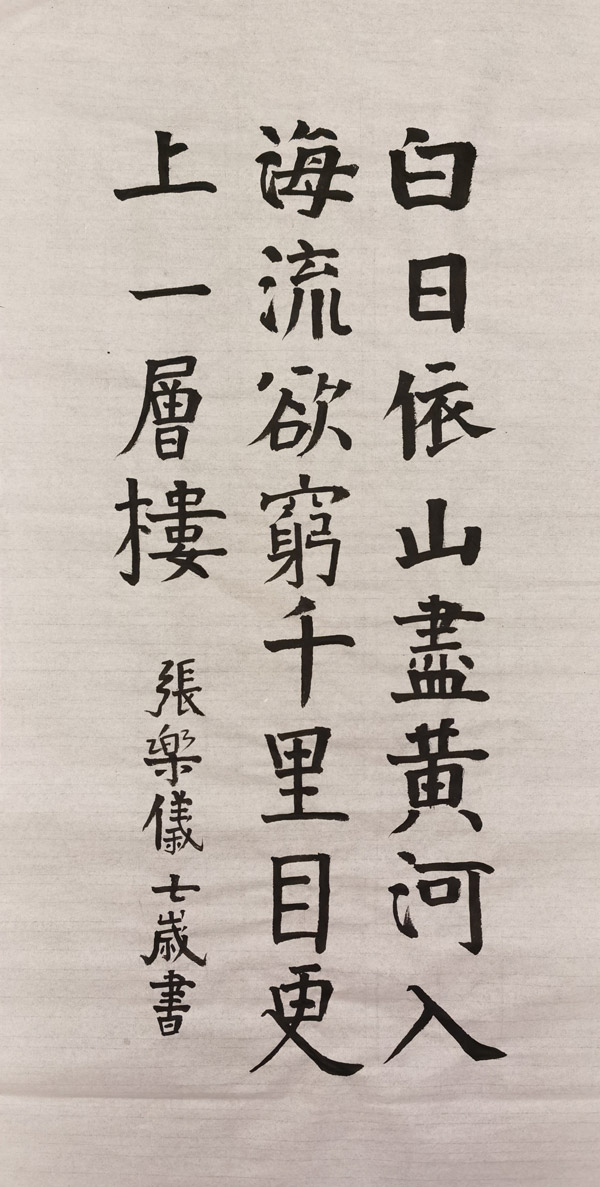 白日依山盡黃河入
海流欲窮千里目更
上一層樓
張樂儀七歲書